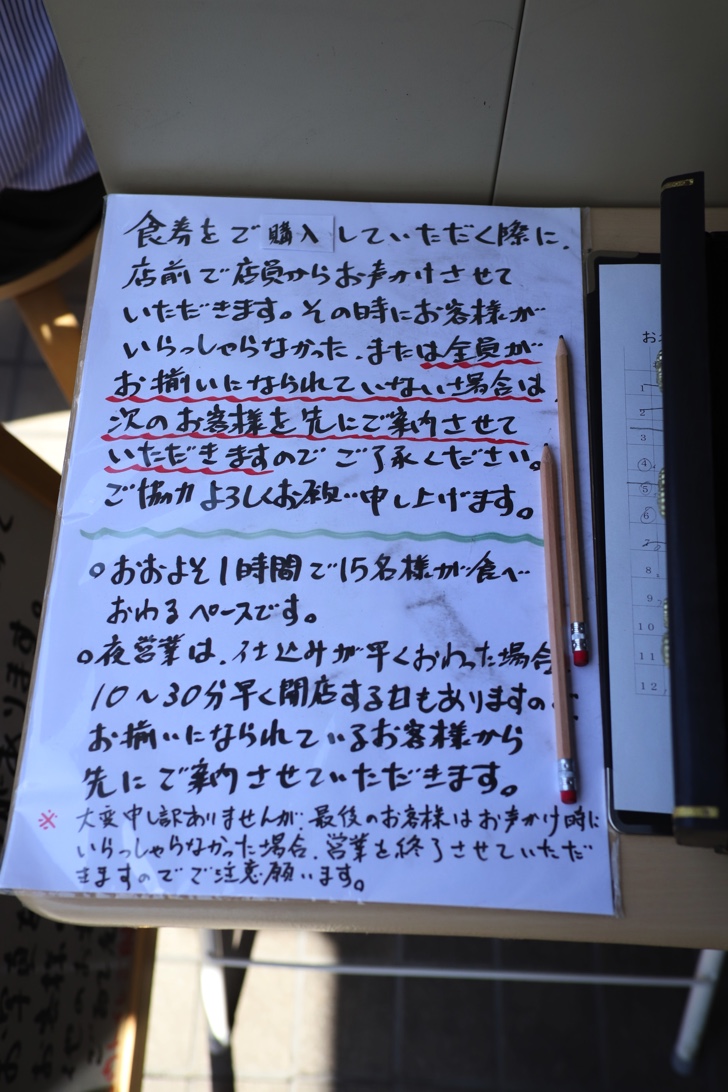 食券をご購入していただく際に、
店前で店員からお声かけさせて
いただきます。その時にお客様が
いらっしゃらなかった、または全員が
お揃いになられていない場合は
次のお客様を先にご案内させて
いただきますのでご了承ください。
ご協力よろしくお願い申し上げます。
○おおよそ1時間で15名様が食べ
おわるペースです。
○夜営業は、仕込みが早くおわった場合
10〜30分早く開店する日もありますの
お揃いになられているお客様から
先にご案内させていただきます。
※大変申し訳ありませんが、最後のお客様はお声かけ時に
いらっしゃらなかった場合、営業を終了させていただ
きますのでご注意願います。
お
1
2
3
④
⑤
⑥
7
8
9
10
11
12